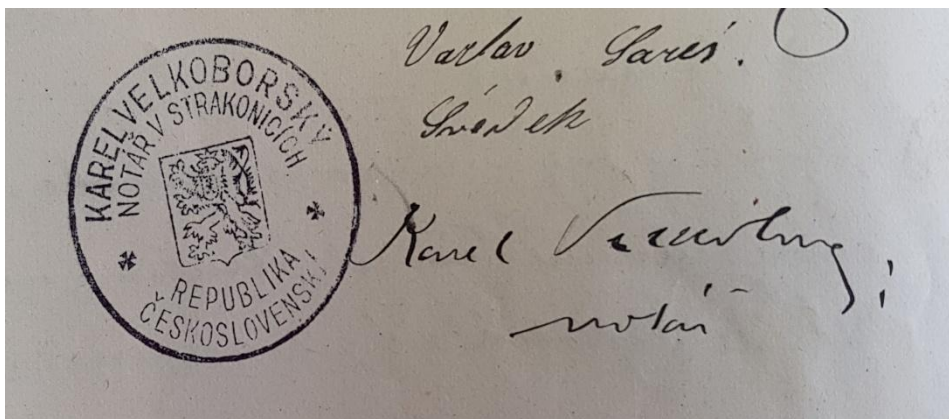 KAREL VELKOBORSKÝ
NOTÁŘ V STRAKONICÍCH
REPUBLIKA
ČESKOSLOVENSKÁ
Václav
Svědek
Karel
notář